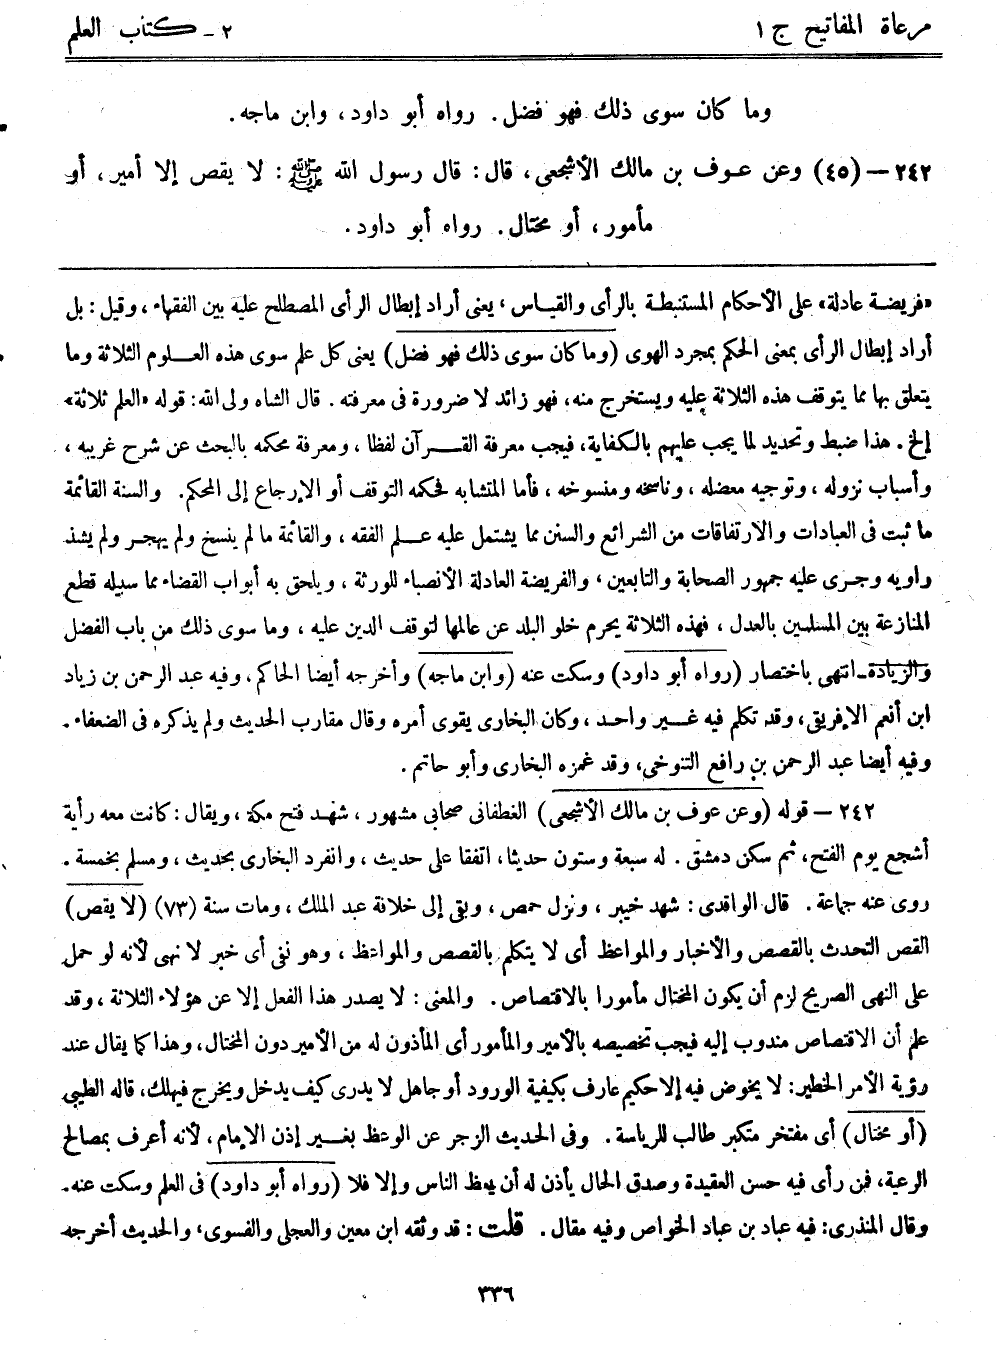 مرعاة المفاتيح ج ١
٢ - كتاب العلم
وما كان سوى ذلك فهو فضل. رواه أبو داود، وابن ماجه.
٢٤٢ - (٤٥) وعن عوف بن مالك الأشجعى، قال: قال رسول الله ﷺ: لا يقص إلا أمير، أو
مأمور، أو مختال. رواه أبو داود.
«فريضة عادلة» على الأحكام المستنبطة بالرأى والقياس، يعنى أراد إبطال الرأى المصطلح عليه بين الفقهاء، وقيل: بل
أراد إبطال الرأى بمعنى الحكم بمجرد الهوى (وما كان سوى ذلك فهو فضل) يعنى كل علم سوى هذه العلوم الثلاثة وما
يتعلق بها مما يتوقف هذه الثلاثة عليه ويستخرج منه، فهو زائد لا ضرورة فى معرفته. قال الشاه ولى الله: قوله «العلم ثلاثة»
إلخ. هذا ضبط وتحديد لما يجب عليهم بالكفاية، فيجب معرفة القرآن لفظا، ومعرفة محكمه بالبحث عن شرح غريبه،
وأسباب نزوله، وتوجيه معضله، وناسخه ومنسوخه، فأما المتشابه فحكمه التوقف أو الإرجاع إلى المحكم. والسنة القائمة
ما ثبت فى العبادات والارتفاقات من الشرائع والسنن مما يشتمل عليه علم الفقه، والقائمة ما لم ينسخ ولم يهجر ولم يشذ
راويه وجرى عليه جمهور الصحابة والتابعين، والفريضة العادلة الأنصباء للورثة، ويلحق به أبواب القضاء مما سبيله قطع
المنازعة بين المسلمين بالعدل، فهذه الثلاثة يحرم خلو البلد عن عالمها لتوقف الدين عليه، وما سوى ذلك من باب الفضل
والزيادة-انتهى باختصار (رواه أبو داود) وسكت عنه (وابن ماجه) وأخرجه أيضا الحاكم، وفيه عبد الرحمن بن زياد
ابن أنعم الإفريقى، وقد تكلم فيه غير واحد، وكان البخارى يقوى أمره وقال مقارب الحديث ولم يذكره فى الضعفاء.
وفيه أيضا عبد الرحمن بن رافع التنوخى، وقد غمزه البخارى وأبو حاتم.
٢٤٢ - قوله (وعن عوف بن مالك الأشجعى) الغطفانى صحابى مشهور، شهد فتح مكة، ويقال: كانت معه رأية
أشجع يوم الفتح، ثم سكن دمشق. له سبعة وستون حديثا، اتفقا على حديث، وانفرد البخارى بحديث، ومسلم بخمسة.
روى عنه جماعة. قال الواقدى: شهد خيبر، ونزل حمص، وبقى إلى خلافة عبد الملك، ومات سنة (٧٣) (لا يقص)
القص التحدث بالقصص والأخبار والمواعظ أى لا يتكلم بالقصص والمواعظ، وهو نفى أى خبر لا نهى لأنه لو حمل
على النهى الصريح لزم أن يكون المختال مأمورا بالاقتصاص. والمعنى: لا يصدر هذا الفعل إلا عن هؤلاء الثلاثة، وقد
علم أن الاقتصاص مندوب إليه فيجب تخصيصه بالأمير والمأمور أى المأذون له من الأمير دون المختال، وهذا كما يقال عند
رؤية الأمر الخطير: لا يخوض فيه إلا حكيم عارف بكيفية الورود أو جاهل لا يدرى كيف يدخل ويخرج فيهلك، قاله الطيبى
(أو مختال) أى مفتخر متكبر طالب للرياسة. وفى الحديث الزجر عن الوعظ بغير إذن الإمام، لأنه أعرف بمصالح
الرعية، فمن رأى فيه حسن العقيدة وصدق الحال يأذن له أن يعظ الناس وإلا فلا (رواه أبو داود) فى العلم وسكت عنه.
وقال المنذرى: فيه عباد بن عباد الخواص وفيه مقال. قلت: قد وثقه ابن معين والعجلى والفسوى، والحديث أخرجه
٣٣٦